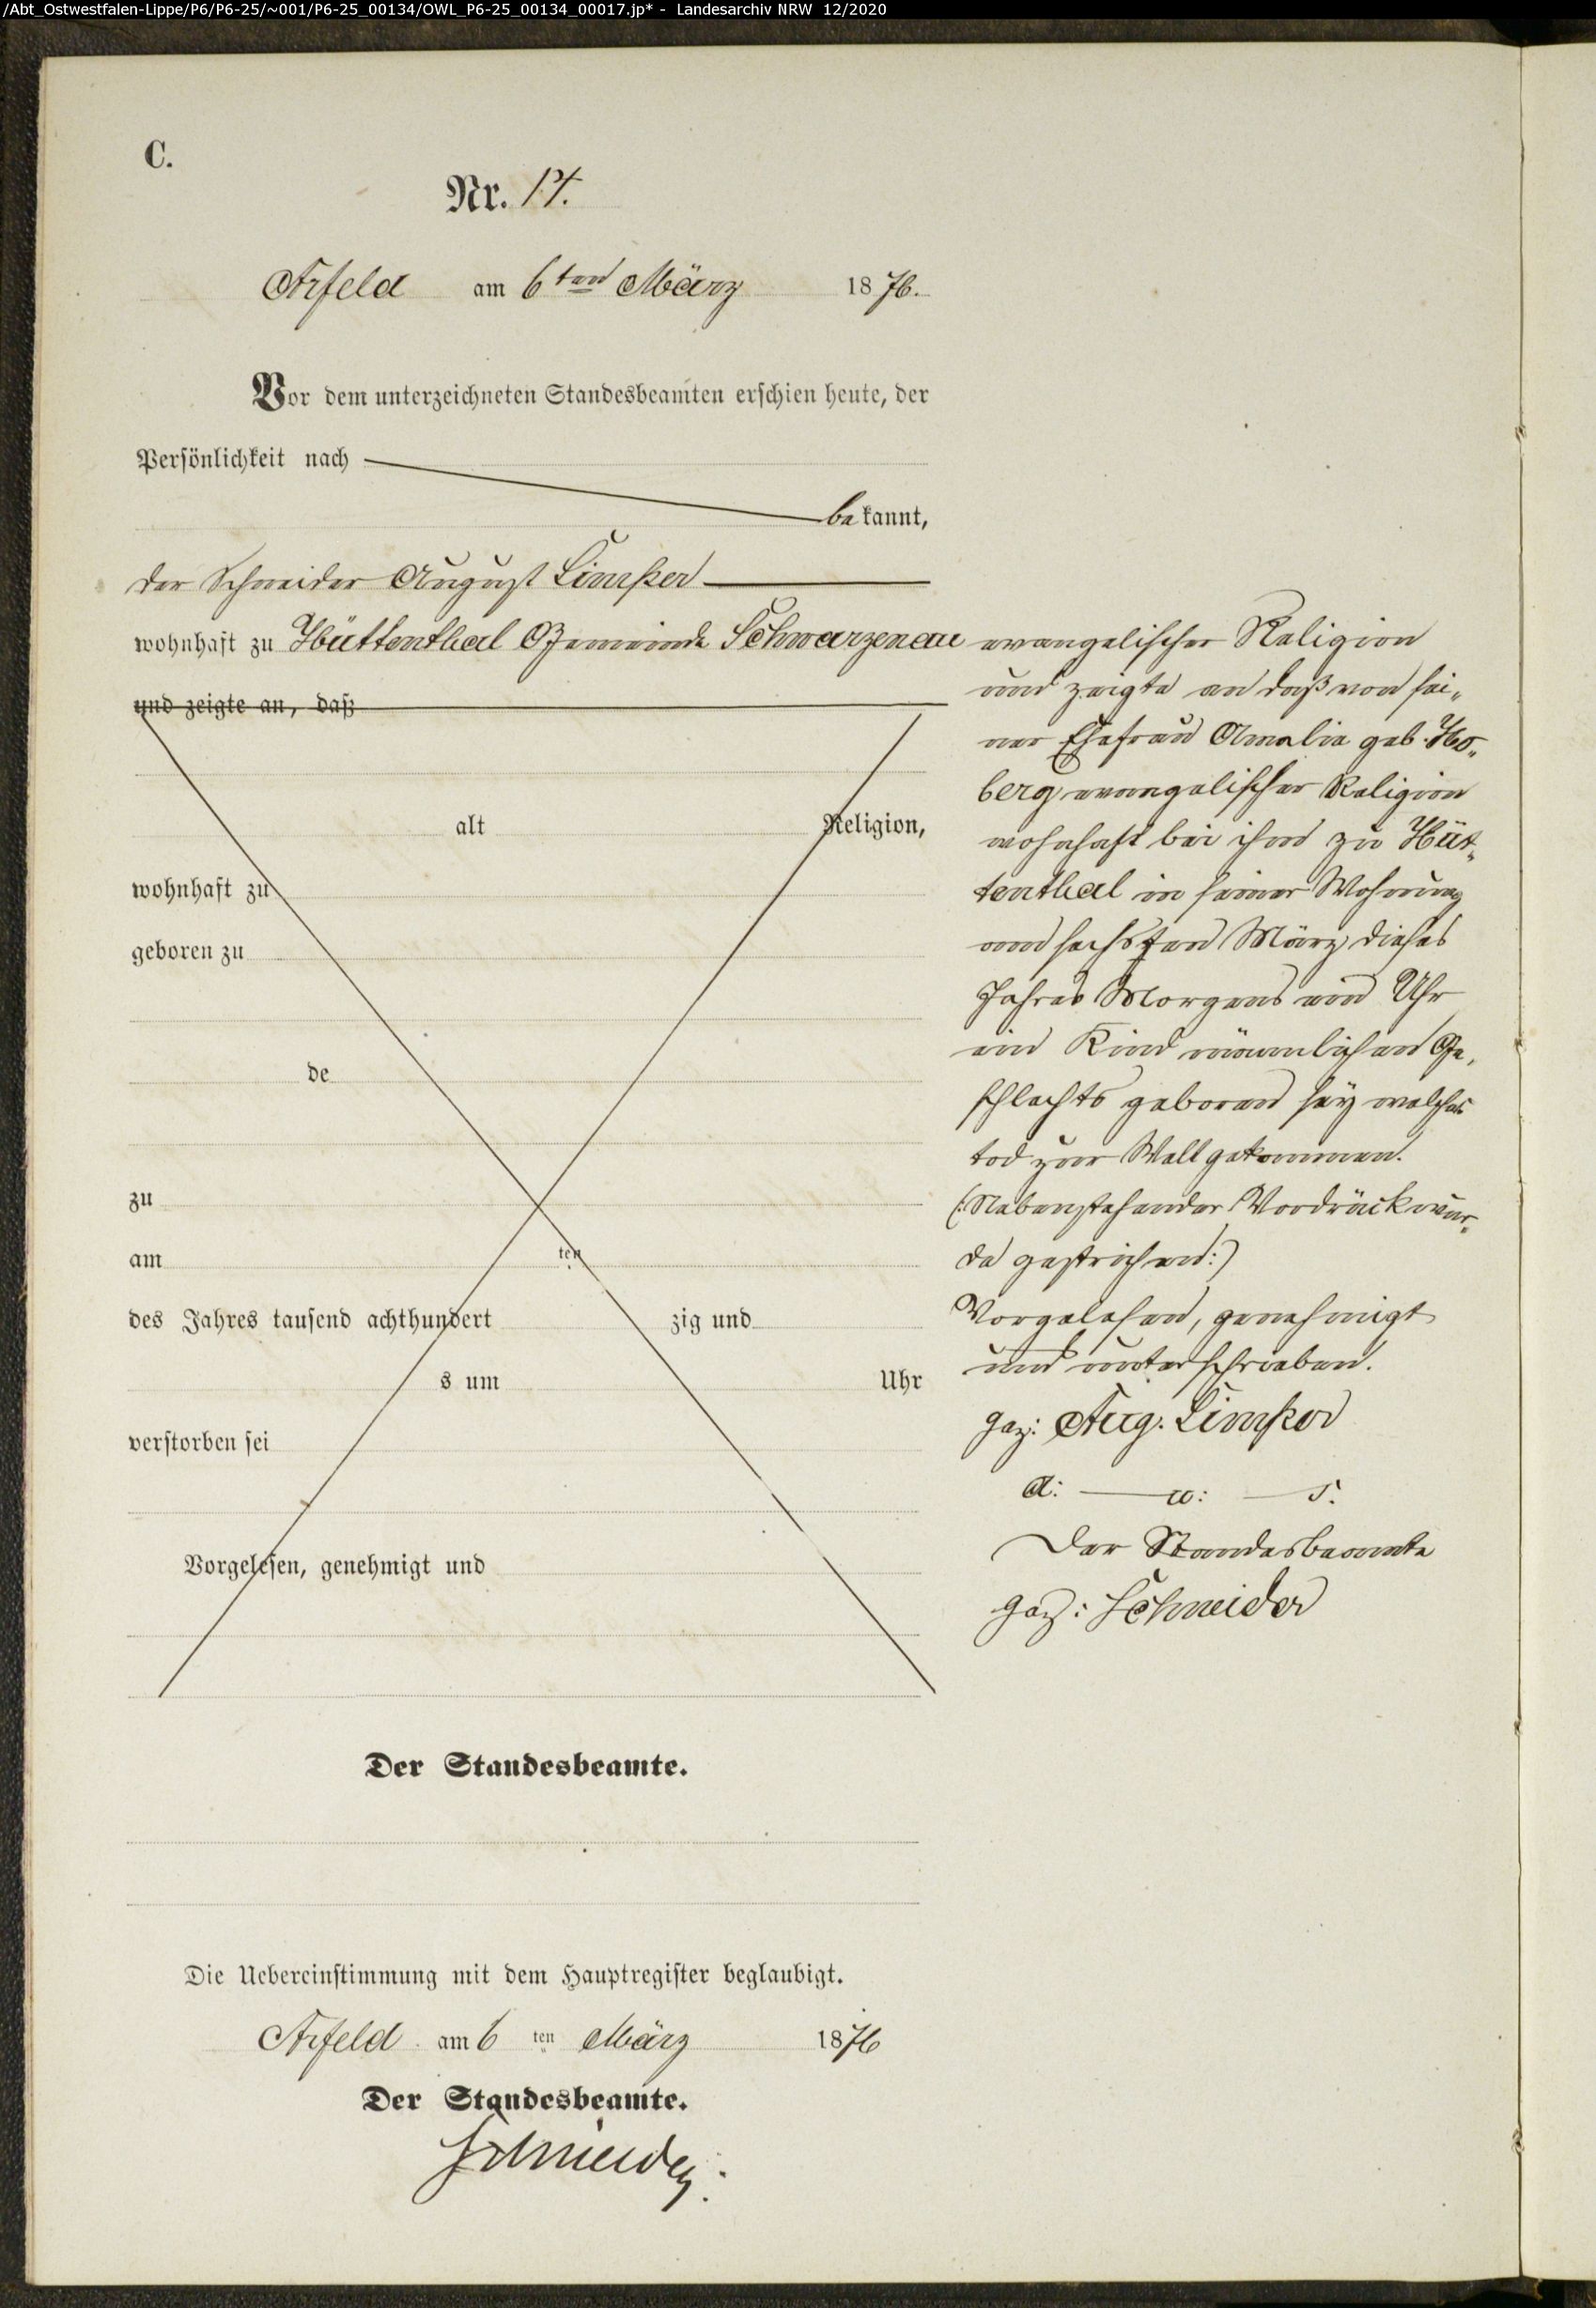 /Abt_Ostwestfalen-Lippe/P6/P6-25/~001/P6-25_00134/OWL_P6-25_00134_00017.jp* - Landesarchiv NRW 12/2020
C.
Nr. 14.
Arfeld am 6ten März 1876.
Vor dem unterzeichneten Standesbeamten erschien heute, der
Persönlichkeit nach
bekannt,
der Schneider August
wohnhaft zu Hüttenthal Gemeinde Schwarzenau
und zeigte an, daß
alt Religion,
wohnhaft zu
geboren zu
de
zu
am ten
des Jahres tausend achthundert zig und
s um Uhr
verstorben sei
Vorgelesen, genehmigt und
evangelischer Religion
und zeigte an daß von sei„
ner Ehefrau Amalia geb. Ho„
berg evangelischer Religion
wohnhaft bei ihm zu Hüt„
tenthal in seiner Wohnung
am sechsten März dieses
Jahres Morgens ein Uhr
ein Kind männlichen Ge„
schlechts geboren sey welches
tod zur Welt gekommen.
(: Nebenstehender Vordruck wur„
de gestrichen:)
Vorgelesen, genehmigt
und unterschrieben.
gez: Aug.
d: — u: — s.
Der Standesbeamte
gez: Schneider
Der Standesbeamte.
Die Uebereinstimmung mit dem Hauptregister beglaubigt.
Arfeld am 6 ten März 1876
Der Standesbeamte.
Schneider.